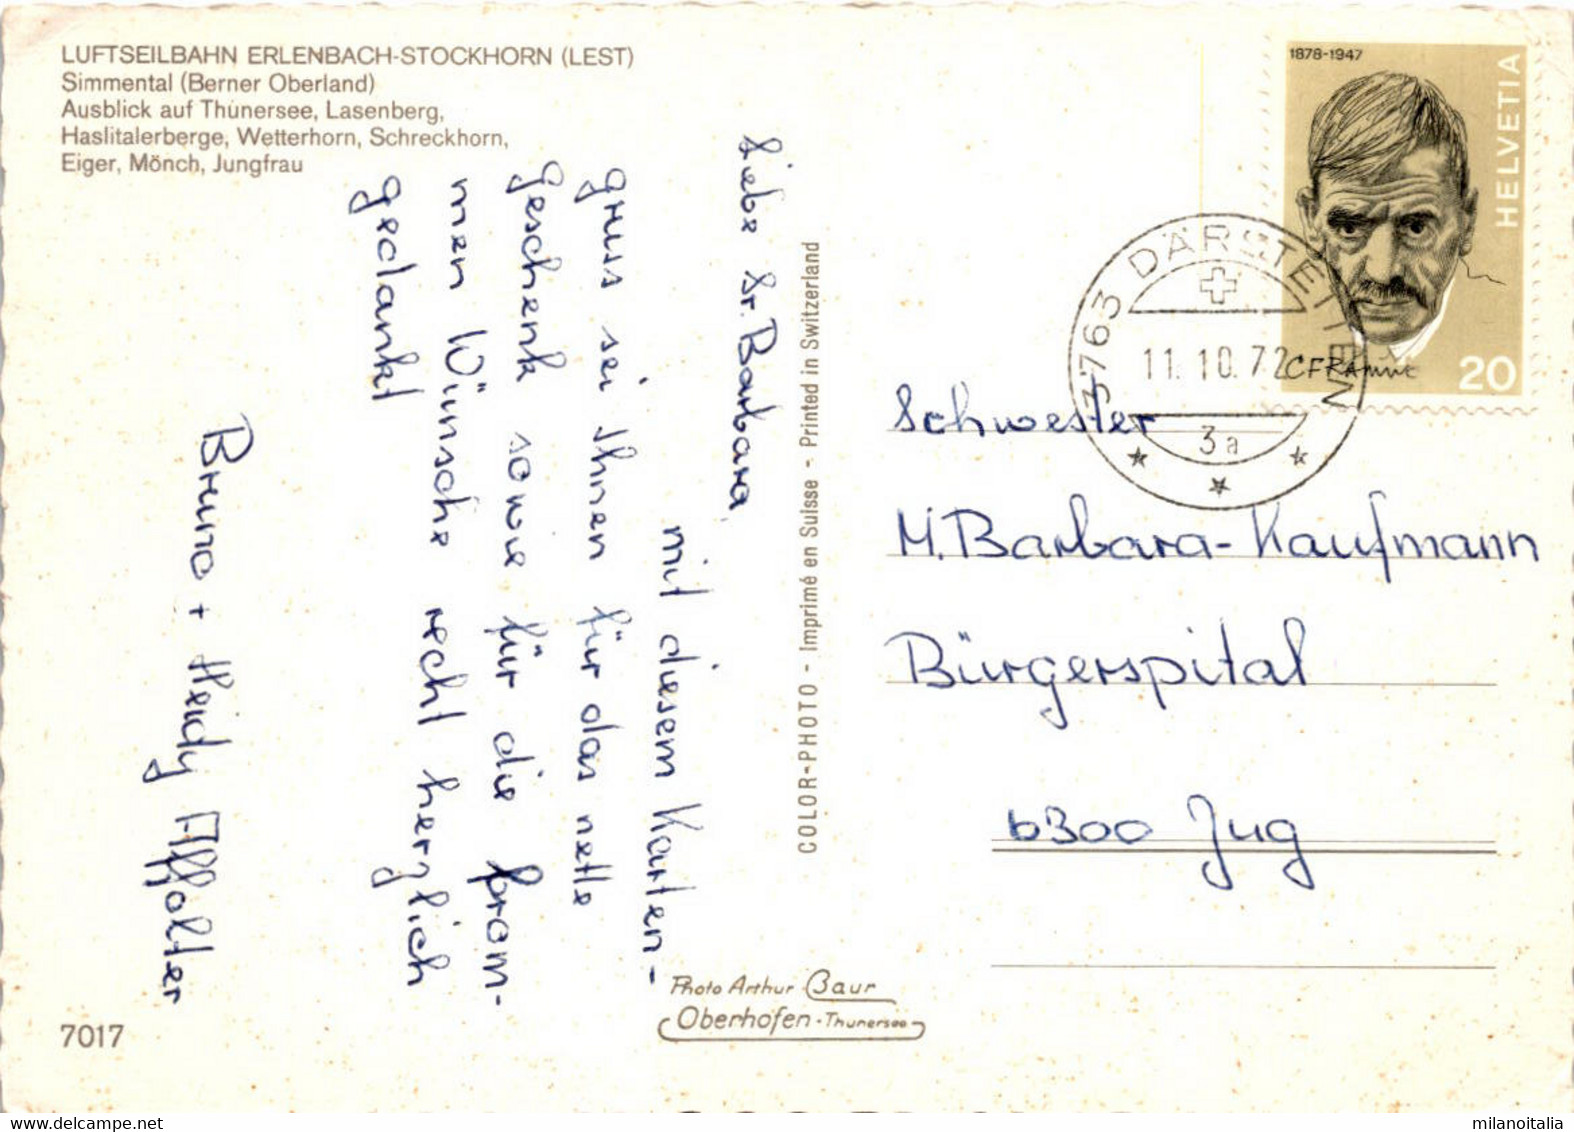 LUFTSEILBAHN ERLENBACH-STOCKHORN (LEST)
Simmental (Berner Oberland)
Ausblick auf Thunersee, Lasenberg,
Haslitalerberge, Wetterhorn, Schreckhorn,
Eiger, Mönch, Jungfrau
Liebe Sr. Barbara,
mit diesem Karten-
gruss sei Ihnen für das nette
Geschenk sowie für die from-
men Wünsche recht herzlich
gedankt
Bruno + Heidy Affolter
7017
COLOR-PHOTO - Imprimé en Suisse - Printed in Switzerland
Photo Arthur Baur
Oberhofen - Thunersee
1878-1947
HELVETIA
CFRAMUZ
20
3763 DÄRSTETTEN
11.10.72
3a
Schwester
M. Barbara-Kaufmann
Bürgerspital
6300 Zug
milanoitalia